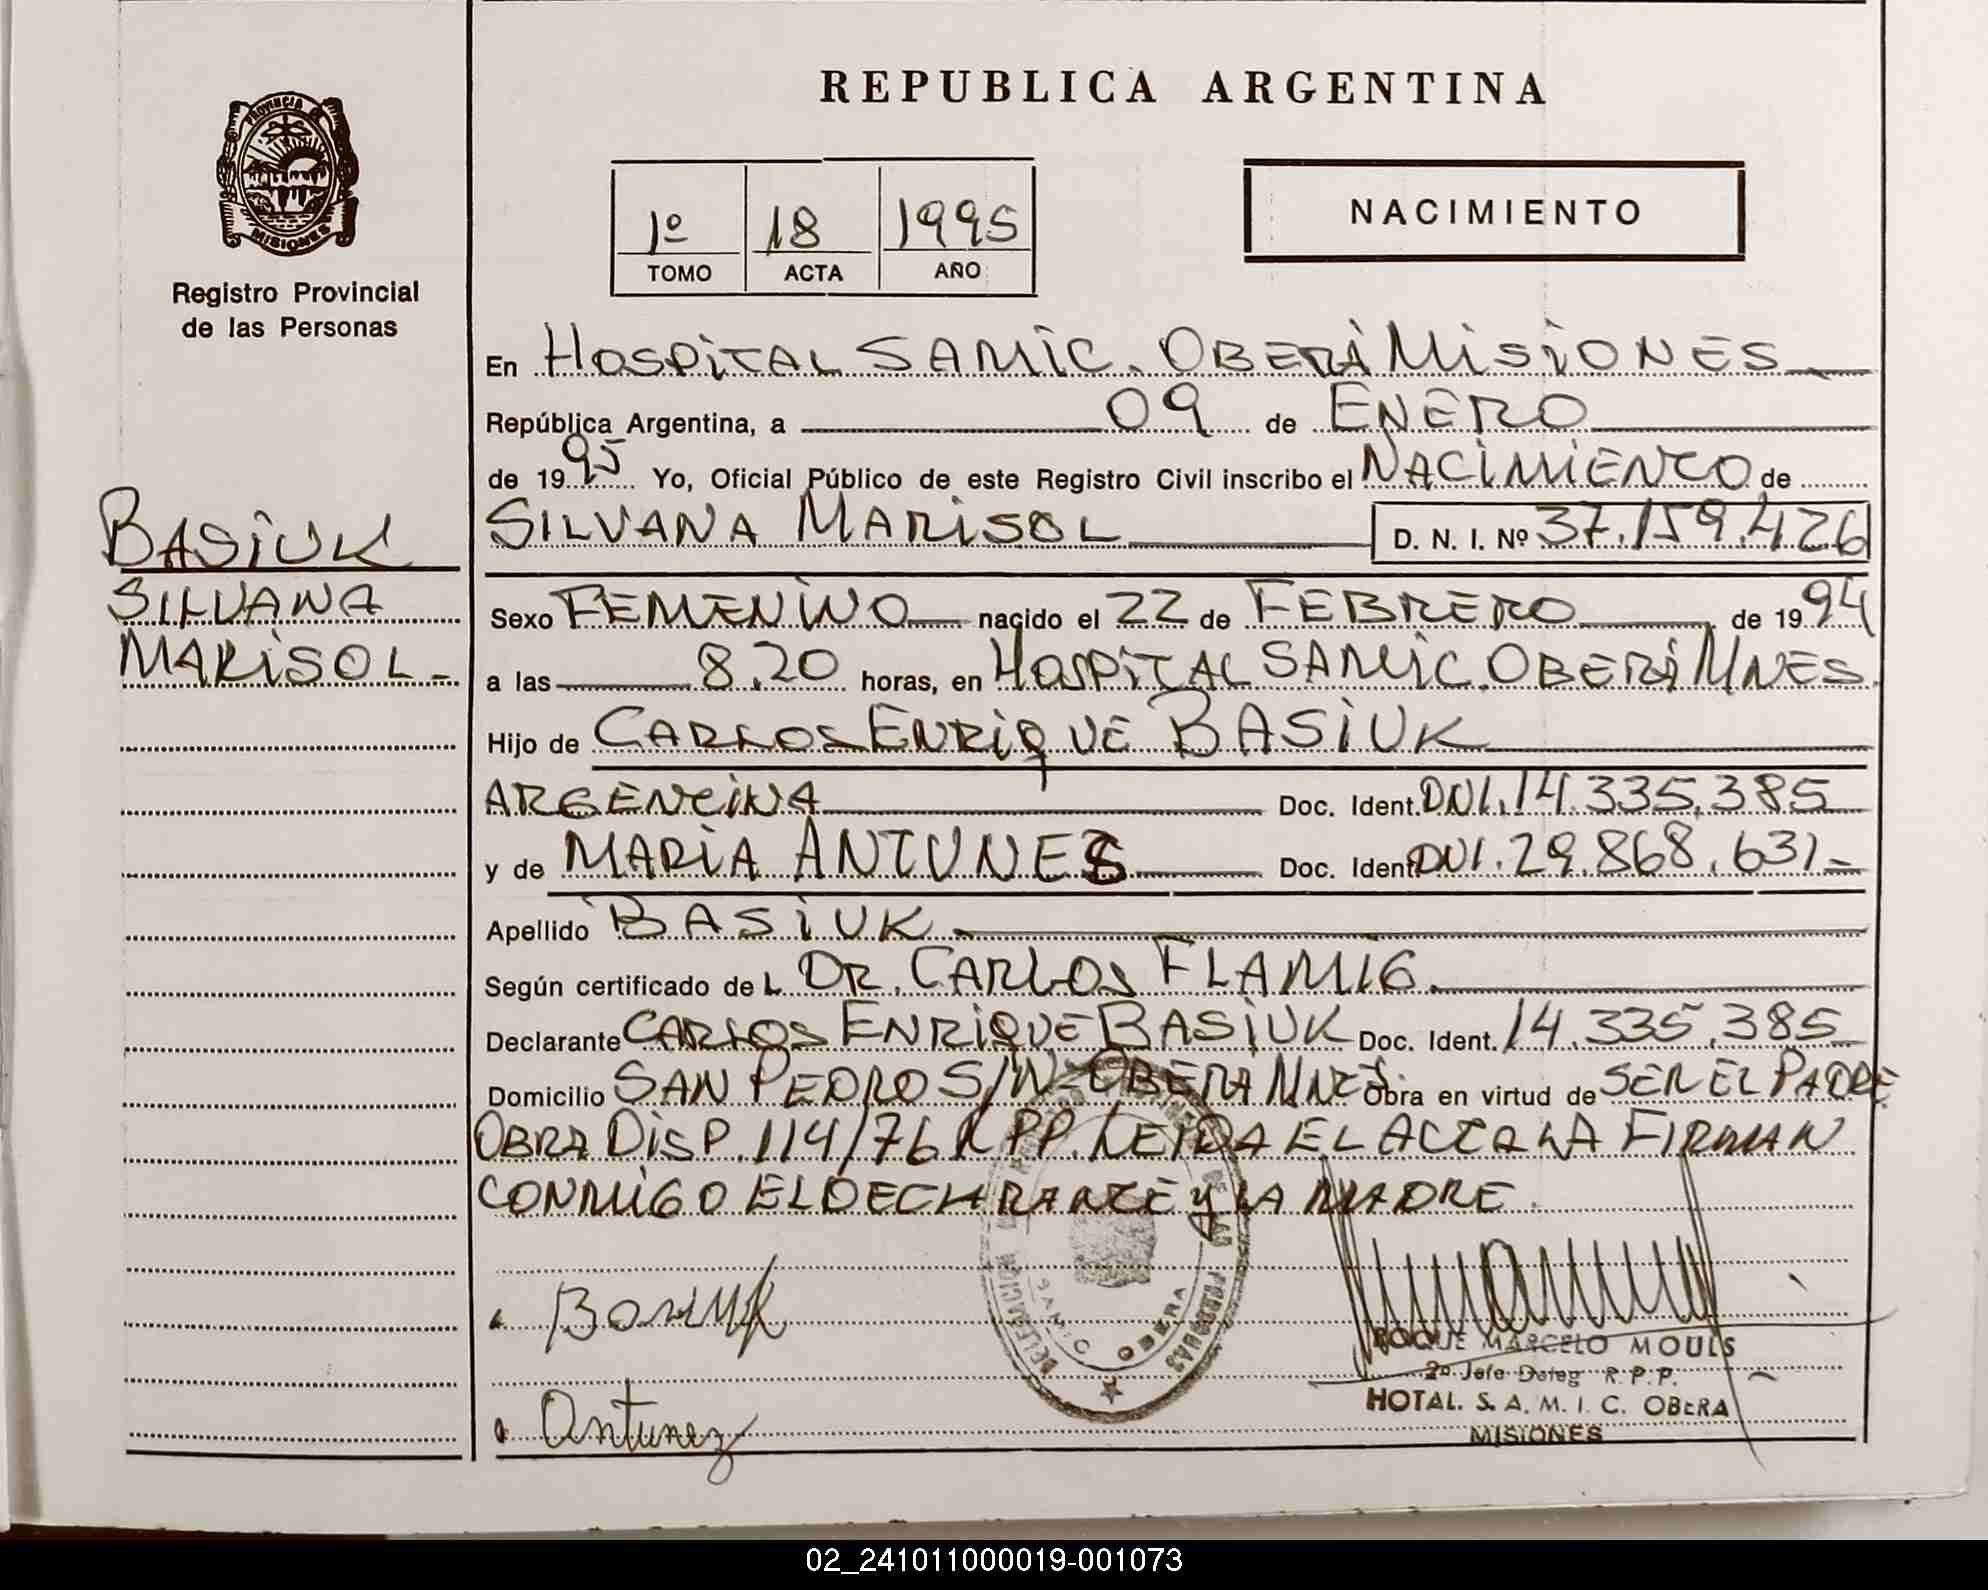 REPUBLICA ARGENTINA
PROVINCIA
MISIONES
Registro Provincial
de las Personas
1º 18 1995
TOMO ACTA AÑO
NACIMIENTO
En HOSPITAL SAMIC. OBERÁ MISIONES
República Argentina, a 09 de ENERO
de 1995 Yo, Oficial Público de este Registro Civil inscribo el NACIMIENTO de
SILVANA MARISOL D. N. I. Nº 37.159.426
BASIUK
SILVANA
MARISOL-
Sexo FEMENINO nacido el 22 de FEBRERO de 1994
a las 8.20 horas, en HOSPITAL SAMIC. OBERÁ MNES.
Hijo de CARLOS ENRIQUE BASIUK
ARGENTINA Doc. Ident. DNI. 14.335.385
y de MARIA ANTUNES Doc. Ident. DNI. 29.868.631-
Apellido BASIUK
Según certificado deL DR. CARLOS FLAMIG.
Declarante CARLOS ENRIQUE BASIUK Doc. Ident. 14.335.385
Domicilio SAN PEDRO S/N-OBERA MNES Obra en virtud de SER EL PADRE
OBRA DISP. 114/76 R PP. LEIDA EL ACTA LA FIRMAN
CONMIGO EL DECLARANTE Y LA MADRE.
DELEGACION
SAMIC OBERA
PERSONAS
Antunez
ROQUE MARCELO MOULS
2º Jefe Deleg R. P. P.
HOTAL. S. A. M. I. C. OBERA
MISIONES
02_241011000019-001073